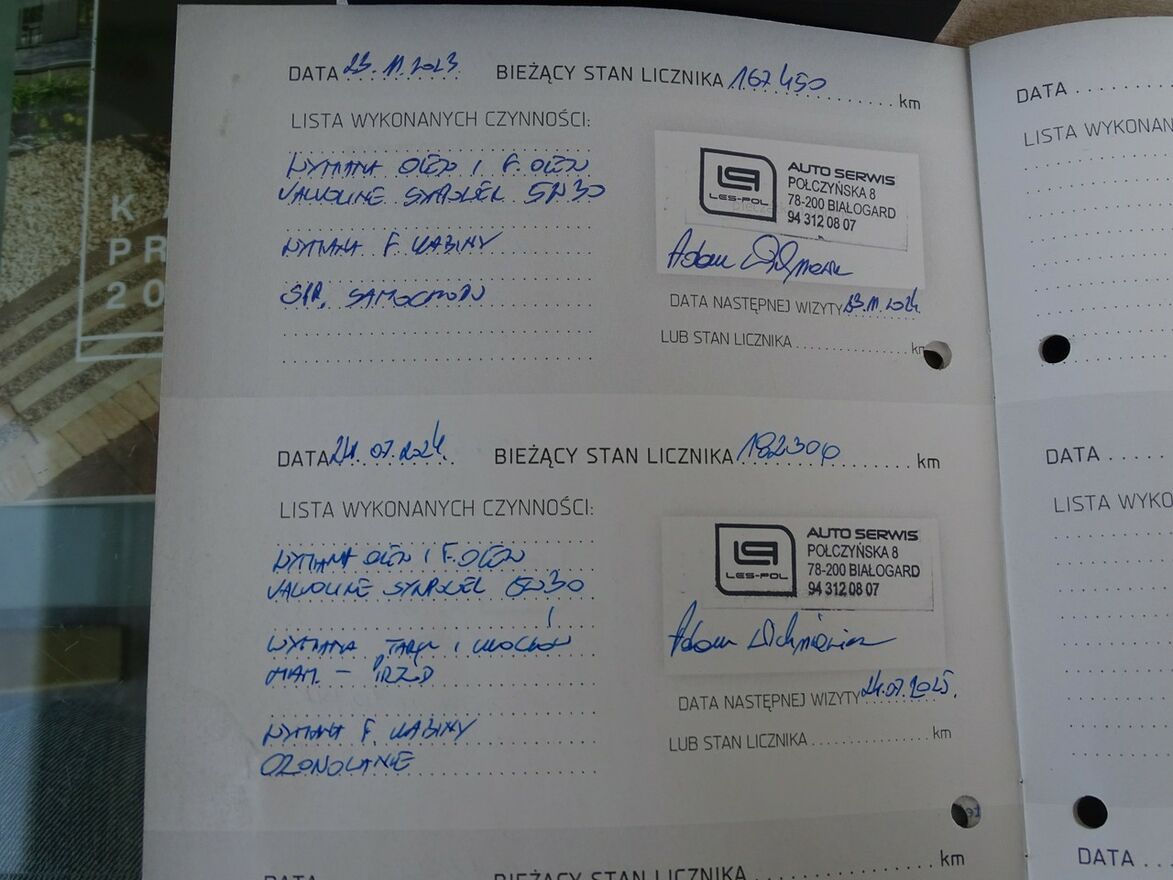 K
PR
20
DATA 23.11.2023 BIEŻĄCY STAN LICZNIKA 167 450 km
LISTA WYKONANYCH CZYNNOŚCI:
WYMIANA OLEJU I F. OLEJU
VALVOLINE SYNPOWER 5W30
WYMIANA F. KABINY
SPR. SAMOCHODU
LP
LES-POL
AUTO SERWIS
POŁCZYŃSKA 8
78-200 BIAŁOGARD
94 312 08 07
Adam
DATA NASTĘPNEJ WIZYTY 23.11.2024.
LUB STAN LICZNIKA km
DATA 24.07.2024 BIEŻĄCY STAN LICZNIKA 182300 km
LISTA WYKONANYCH CZYNNOŚCI:
WYMIANA OLEJU I F. OLEJU
VALVOLINE SYNPOWER 5W30
WYMIANA TARCZ I KLOCKÓW
HAM. - PRZÓD
WYMIANA F. KABINY
OZONOWANIE
LP
LES-POL
AUTO SERWIS
POŁCZYŃSKA 8
78-200 BIAŁOGARD
94 312 08 07
Adam
DATA NASTĘPNEJ WIZYTY 24.07.2025.
LUB STAN LICZNIKA km
DATA BIEŻĄCY STAN LICZNIKA km
DATA
LISTA WYKONAN
DATA
LISTA WYKO
DATA